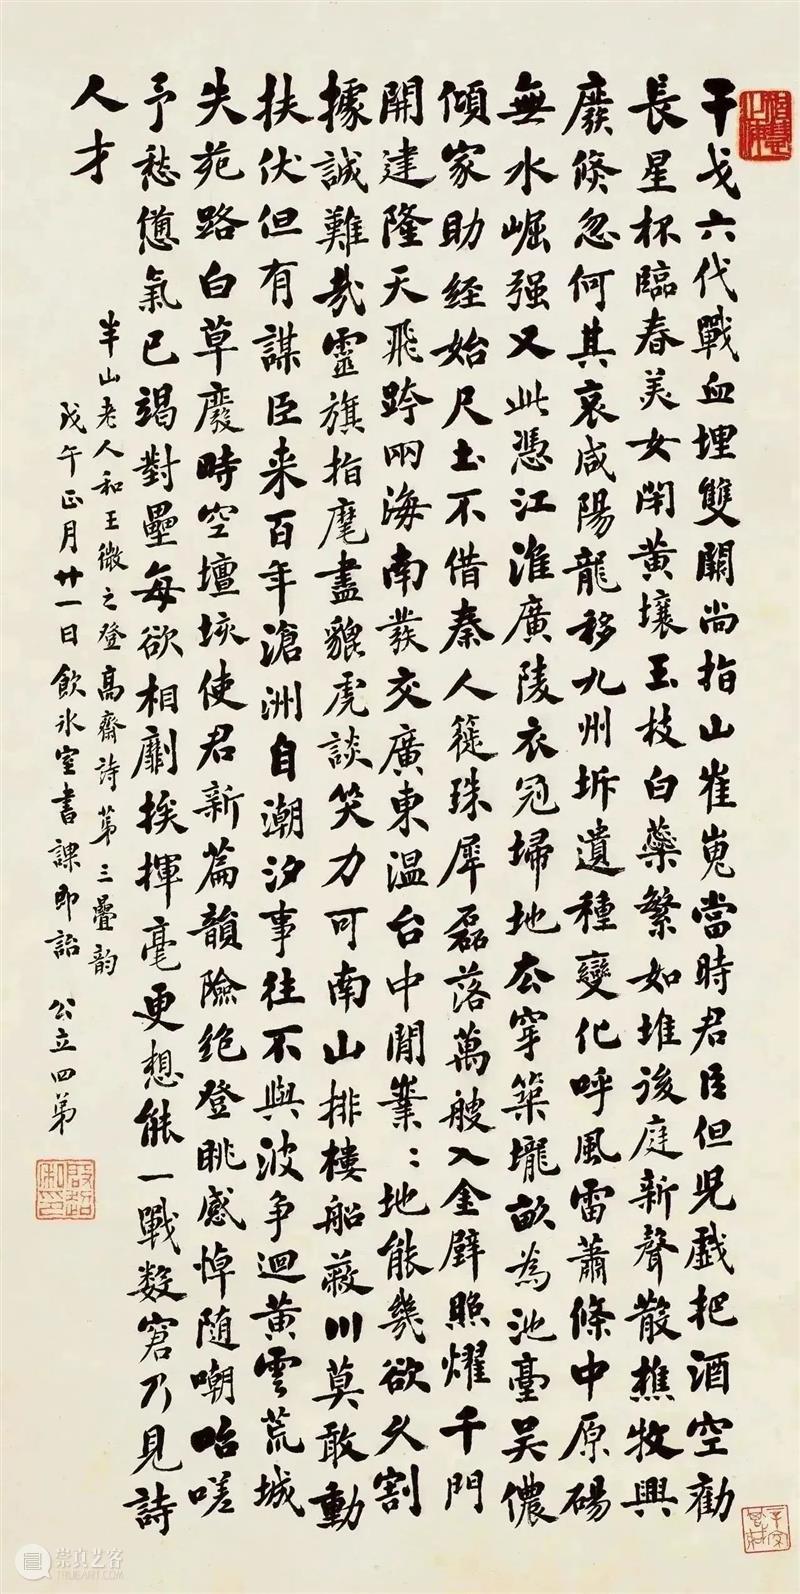 干戈六代戰血埋雙闕尚指山崔嵬當時君臣但兒戲把酒空勸
長星杯臨春美女閉黃壤玉枝白蘂繁如堆後庭新聲散樵牧興
廢倏忽何其哀咸陽龍移九州坼遺種變化呼風雷蕭條中原碭
無水崛强又此憑江淮廣陵衣冠掃地去穿築壠畝為池臺吴儂
傾家助經始尺土不借秦人簁珠犀磊落萬艘入金壁照耀千門
開建隆天飛跨兩海南發交廣東温台中間業〻地能幾欲久割
據誠難哉靈旗指麾盡貔虎談笑力可南山排樓船蔽川莫敢動
扶伏但有謀臣来百年滄洲自潮汐事往不與波争迴黄雲荒城
失苑路白草廢時空壇垓使君新篇韻險絶登眺感悼随嘲咍嗟
予愁憊氣已竭對壘每欲相劘挨揮毫更想能一戰数窘乃見詩
人才
半山老人和王微之登高齋詩第三疊韵
戊午正月廿一日飲冰室書課即詒 公立四弟
崇真艺客